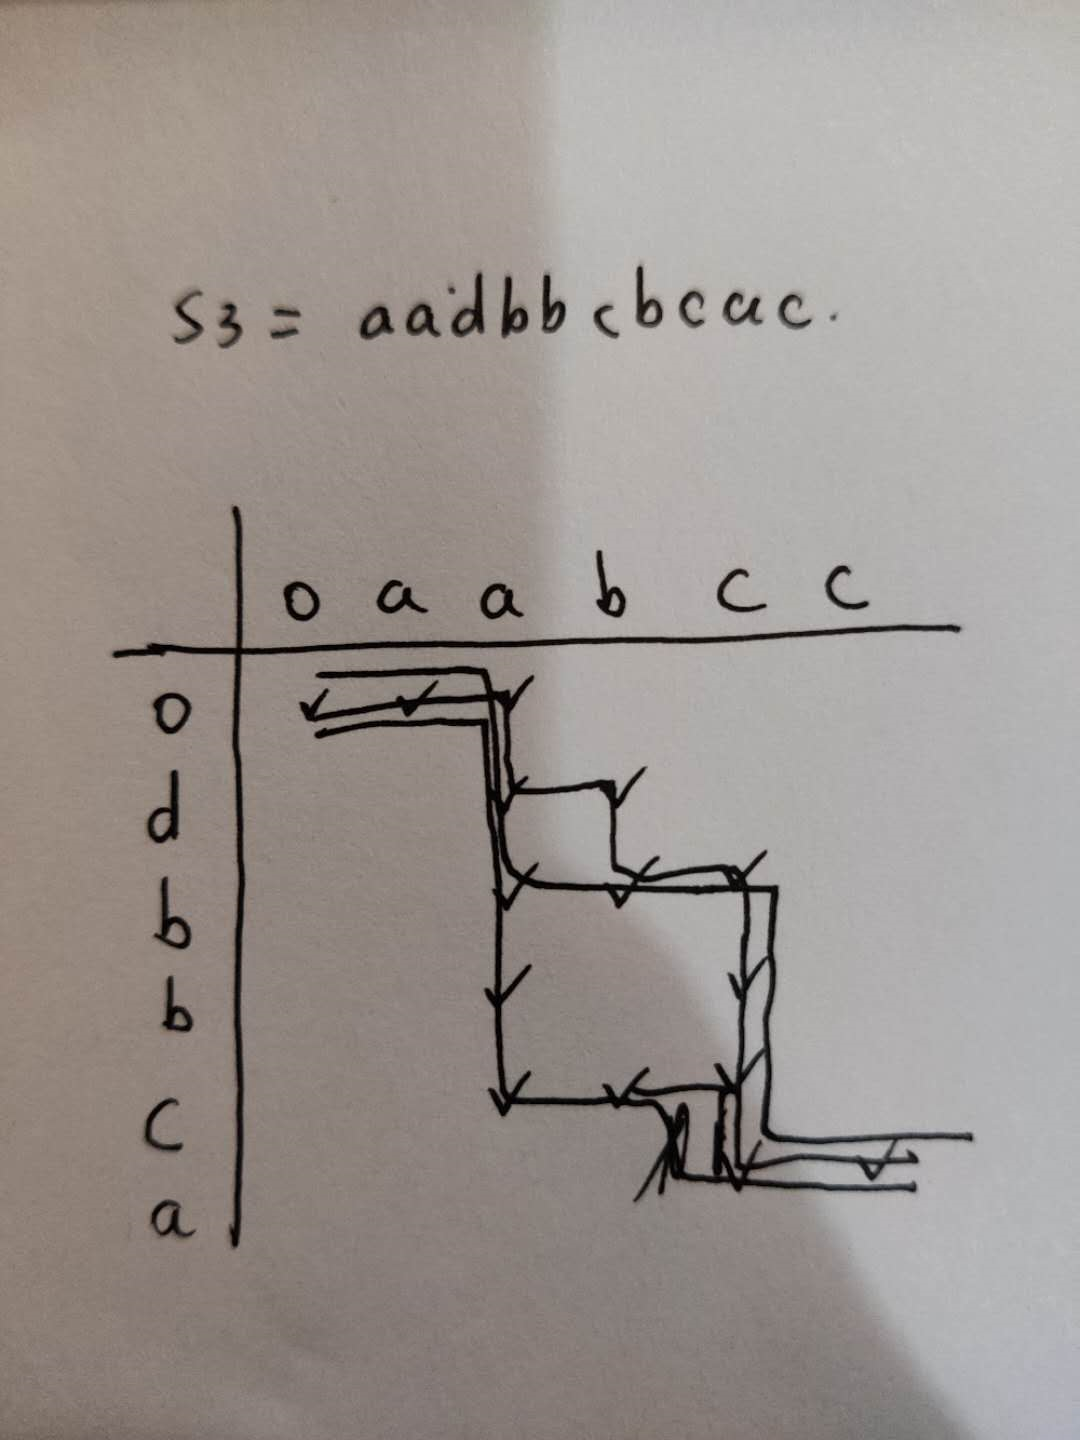 S3 = aadbbcbcac.
o a a b c c
o
d
b
b
c
a